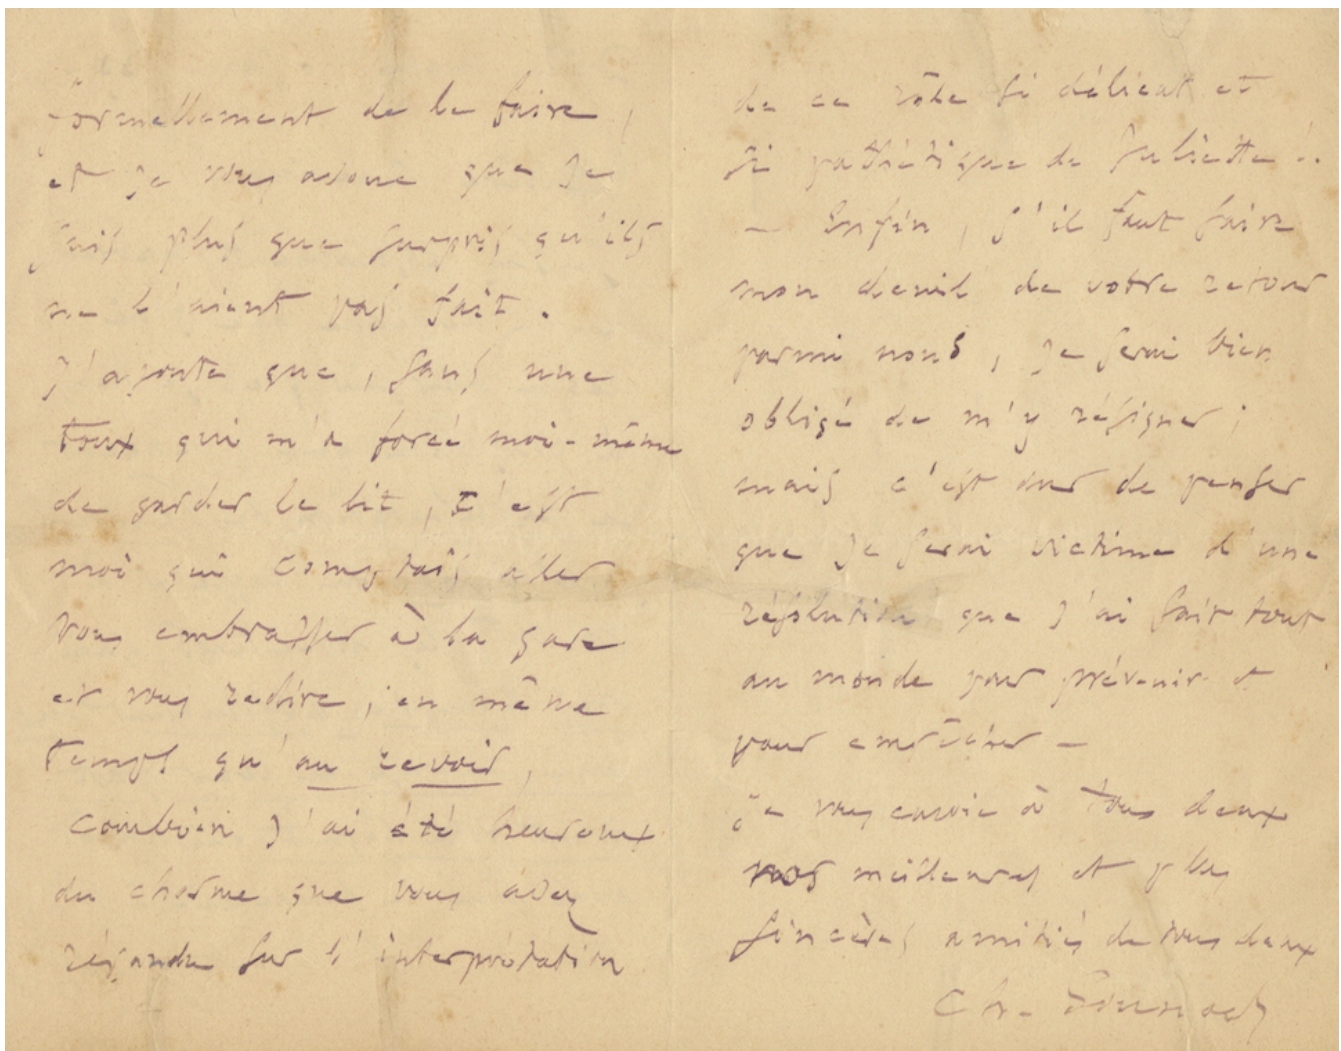 formellement de le faire,
et je vous avoue que je
suis plus que surpris qu'ils
ne l'aient pas fait.
J'ajoute que, sans une
toux qui m'a forcé moi-même
de garder le lit, c'est
moi qui comptais aller
vous embrasser à la gare
et vous redire, en même
temps qu'au revoir,
combien j'ai été heureux
du charme que vous avez
répandu sur l'interprétation
de ce rôle si délicat et
si pathétique de Juliette!.
— Enfin, s'il faut faire
mon deuil de votre retour
parmi nous, je serai bien
obligé de m'y résigner;
mais c'est dur de penser
que je serai victime d'une
résolution que j'ai fait tout
au monde pour prévenir et
pour empêcher —
Je vous envoie à tous deux
nos meilleures et plus
sincères amitiés de tous deux
Ch. Gounod